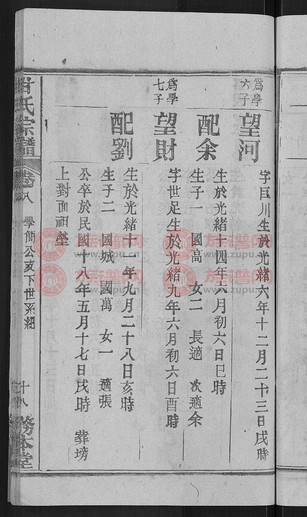 爲學六子
望河
字巨川生於光緒六年十二月二十三日戌時
配余
生於光緒十四年六月初六日巳時
生子一 國高 女二 長適 次適余
爲學七子
望財
字世足生於光緒九年六月初六日酉時
配劉
生於光緒十一年九月二十八日亥時
生子二 國城 國萬 女一 適張
公卒於民國十八年五月十七日戌時 葬塝
上對面
甘氏宗譜
卷八
學簡公支下世系紹
十八
務本堂